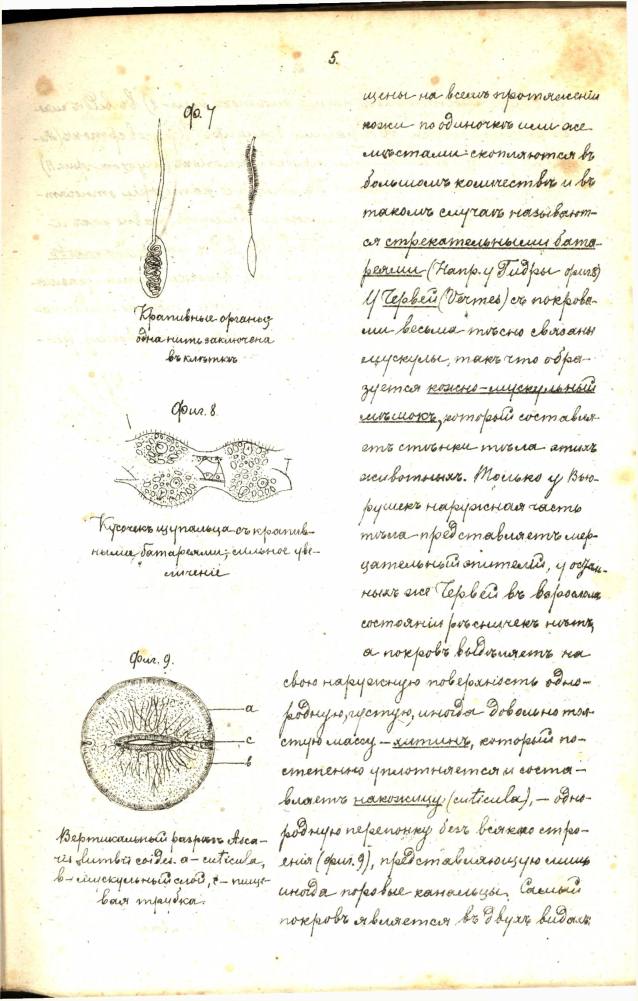 5.
Ф. 7
Крапивные органы;
одна нить заключена
въ клѣткѣ.
Фиг. 8.
Кусочекъ щупальца съ крапив-
ными батареями; сильное уве-
личеніе
Фиг. 9.
a
c
b
Вертикальный разрѣзъ Asca-
ris lumbricoides. a – cuticula,
в – мускульный слой, c – пище-
вая трубка.
щены на всемъ протяженіи
кожи по одиночкѣ или же
мѣстами скопляются въ
большомъ количествѣ и въ
такомъ случаѣ называют-
ся стрекательными бата-
реями (Напр. у Гидры фиг 8)
У Червей (Vermes) съ покрова-
ми весьма тѣсно связаны
мускулы, такъ что обра-
зуется кожно-мускульный
мѣшокъ, который составля-
етъ стѣнки тѣла этихъ
животныхъ. Только у Вью-
рушекъ наружная часть
тѣла представляетъ мер-
цательный эпителій, у осталь-
ныхъ же Червей въ взросломъ
состояніи рѣсничекъ нѣтъ,
а покровъ выдѣляетъ на
свою наружную поверхность одно-
родную, густую, иногда довольно тол-
стую массу – хитинъ, который по-
степенно уплотняется и соста-
вляетъ накожицу (cuticula), – одно-
родную перепонку безъ всякаго стро-
енія (фиг. 9), представляющую лишь
иногда поровые канальцы. Самый
покровъ является въ двухъ видахъ